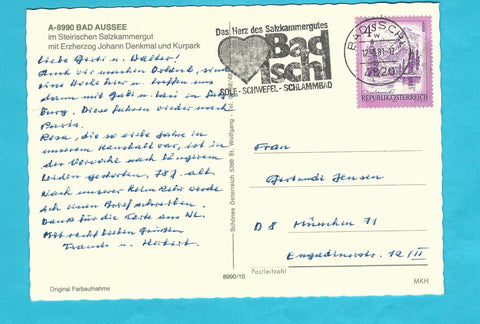 A-8990 BAD AUSSEE
im Steirischen Salzkammergut
mit Erzherzog Johann Denkmal und Kurpark
Liebe Gerti u. Walter!
Auch wir machen Urlaub, sind
eine Woche hier u. treffen uns
dann mit Gabi u. in Salz-
burg. Diese fahren wieder nach
Paris.
Rosa, die so viele Jahre in
unserem Haushalt war, ist in
der Vorwoche nach längerem
Leiden gestorben, 78 J. alt.
Nach unserer Heimkehr werde
ich einen Brief schreiben.
Dank für die Karte aus NL.
Mit recht lieben Grüßen
Traude u. Herbert.
Original Farbaufnahme
Schönes Österreich 5360 St. Wolfgang - Tel.
8990/10
Das Herz des Salzkammergutes
Bad
Ischl
SOLE - SCHWEFEL - SCHLAMMBAD
BAD ISCHL
4820
REPUBLIK ÖSTERREICH
Frau
Gertrude Jensen
D 8 München 71
Engadinerstr. 12/II
Postleitzahl
MKH